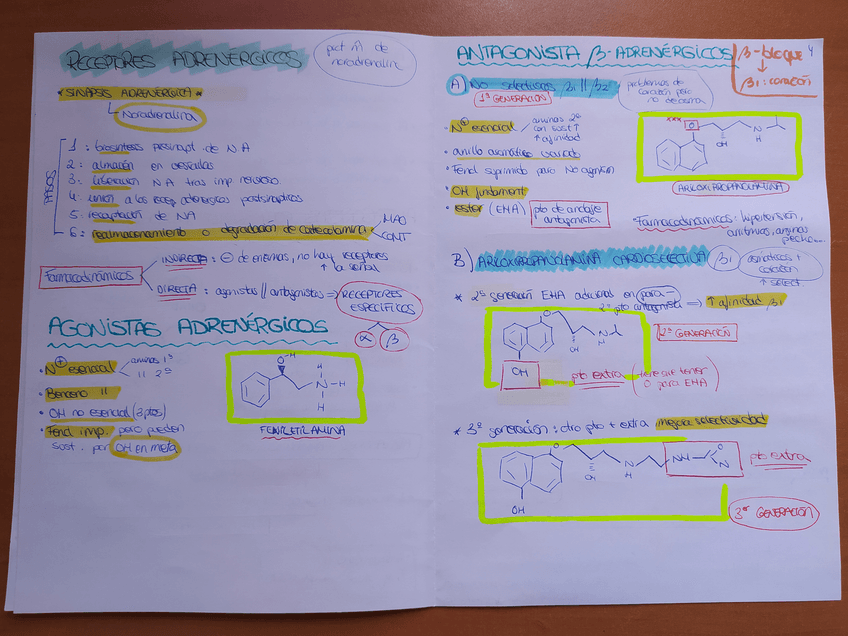 RECEPTORES ADRENÉRGICOS
noradrenalina
• SINAPSIS ADRENÉRGICA •
Noradrenalina
PASOS
1: biosíntesis presinapt. de NA
2: almacén en vesículas
3: liberación NA tras imp nervioso.
4: unión a los recep adrenergicos postsinápticos
5: recaptación de NA
6: realmacenamiento o degradación de catecolamina
MAO
COMT
Farmacodinámicos
INDIRECTA: ⊖ de enzimas, no hay receptores
↑ la señal
DIRECTA: agonistas // antagonistas ⇒ RECEPTORES
ESPECÍFICOS
α β
AGONISTAS ADRENÉRGICOS
• N⊕ esencial
aminas 1º
" 2º
• Benceno
• OH no esencial (2 ptos)
• Fenol imp. pero pueden
sust. por OH en meta
O H
H
N H
H
FENILETILAMINA
ANTAGONISTA β-ADRENÉRGICOS
β-bloque
↓
β1: corazón
4
A) No selectivos β1 // β2
1ª GENERACIÓN
problemas de
corazón pero
no de asma
• N⊕ esencial
aminas 2º
con sust ↑
↑ afinidad
• anillo aromático variado
• Fenol suprimido para No agonism
• OH fundament
• ester (EHA) pto de anclaje
antagonista
*** O
OH
N
H
ARILOXIPROPANOLAMINA
• Farmacodinámicos: hipertensión,
arritmias, angina
pecho...
B) ARILOXIPROPANOLAMINA CARDIOSELECTIVA β1
asmáticos +
corazón
↑ select.
* 2ª generación EHA adicional en para
2º pto antagonista ⇒ ↑ afinidad β1
O
OH
N
H
OH
2ª GENERACIÓN
pto extra (tiene que tener
O para EHA)
* 3ª generación: otro pto + extra mejora selectividad
O
OH
N
H
NH
O
N
OH
pto extra
3ª GENERACIÓN